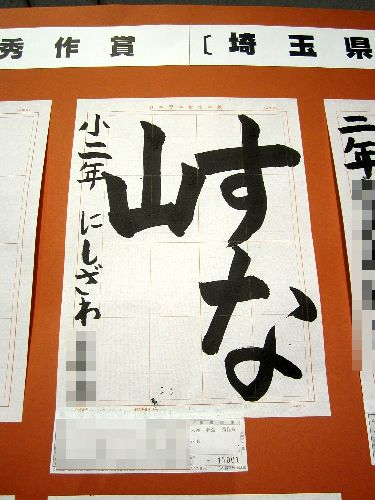 秀作賞 〔埼玉県
すな
山
小二年 にしざわ
二年